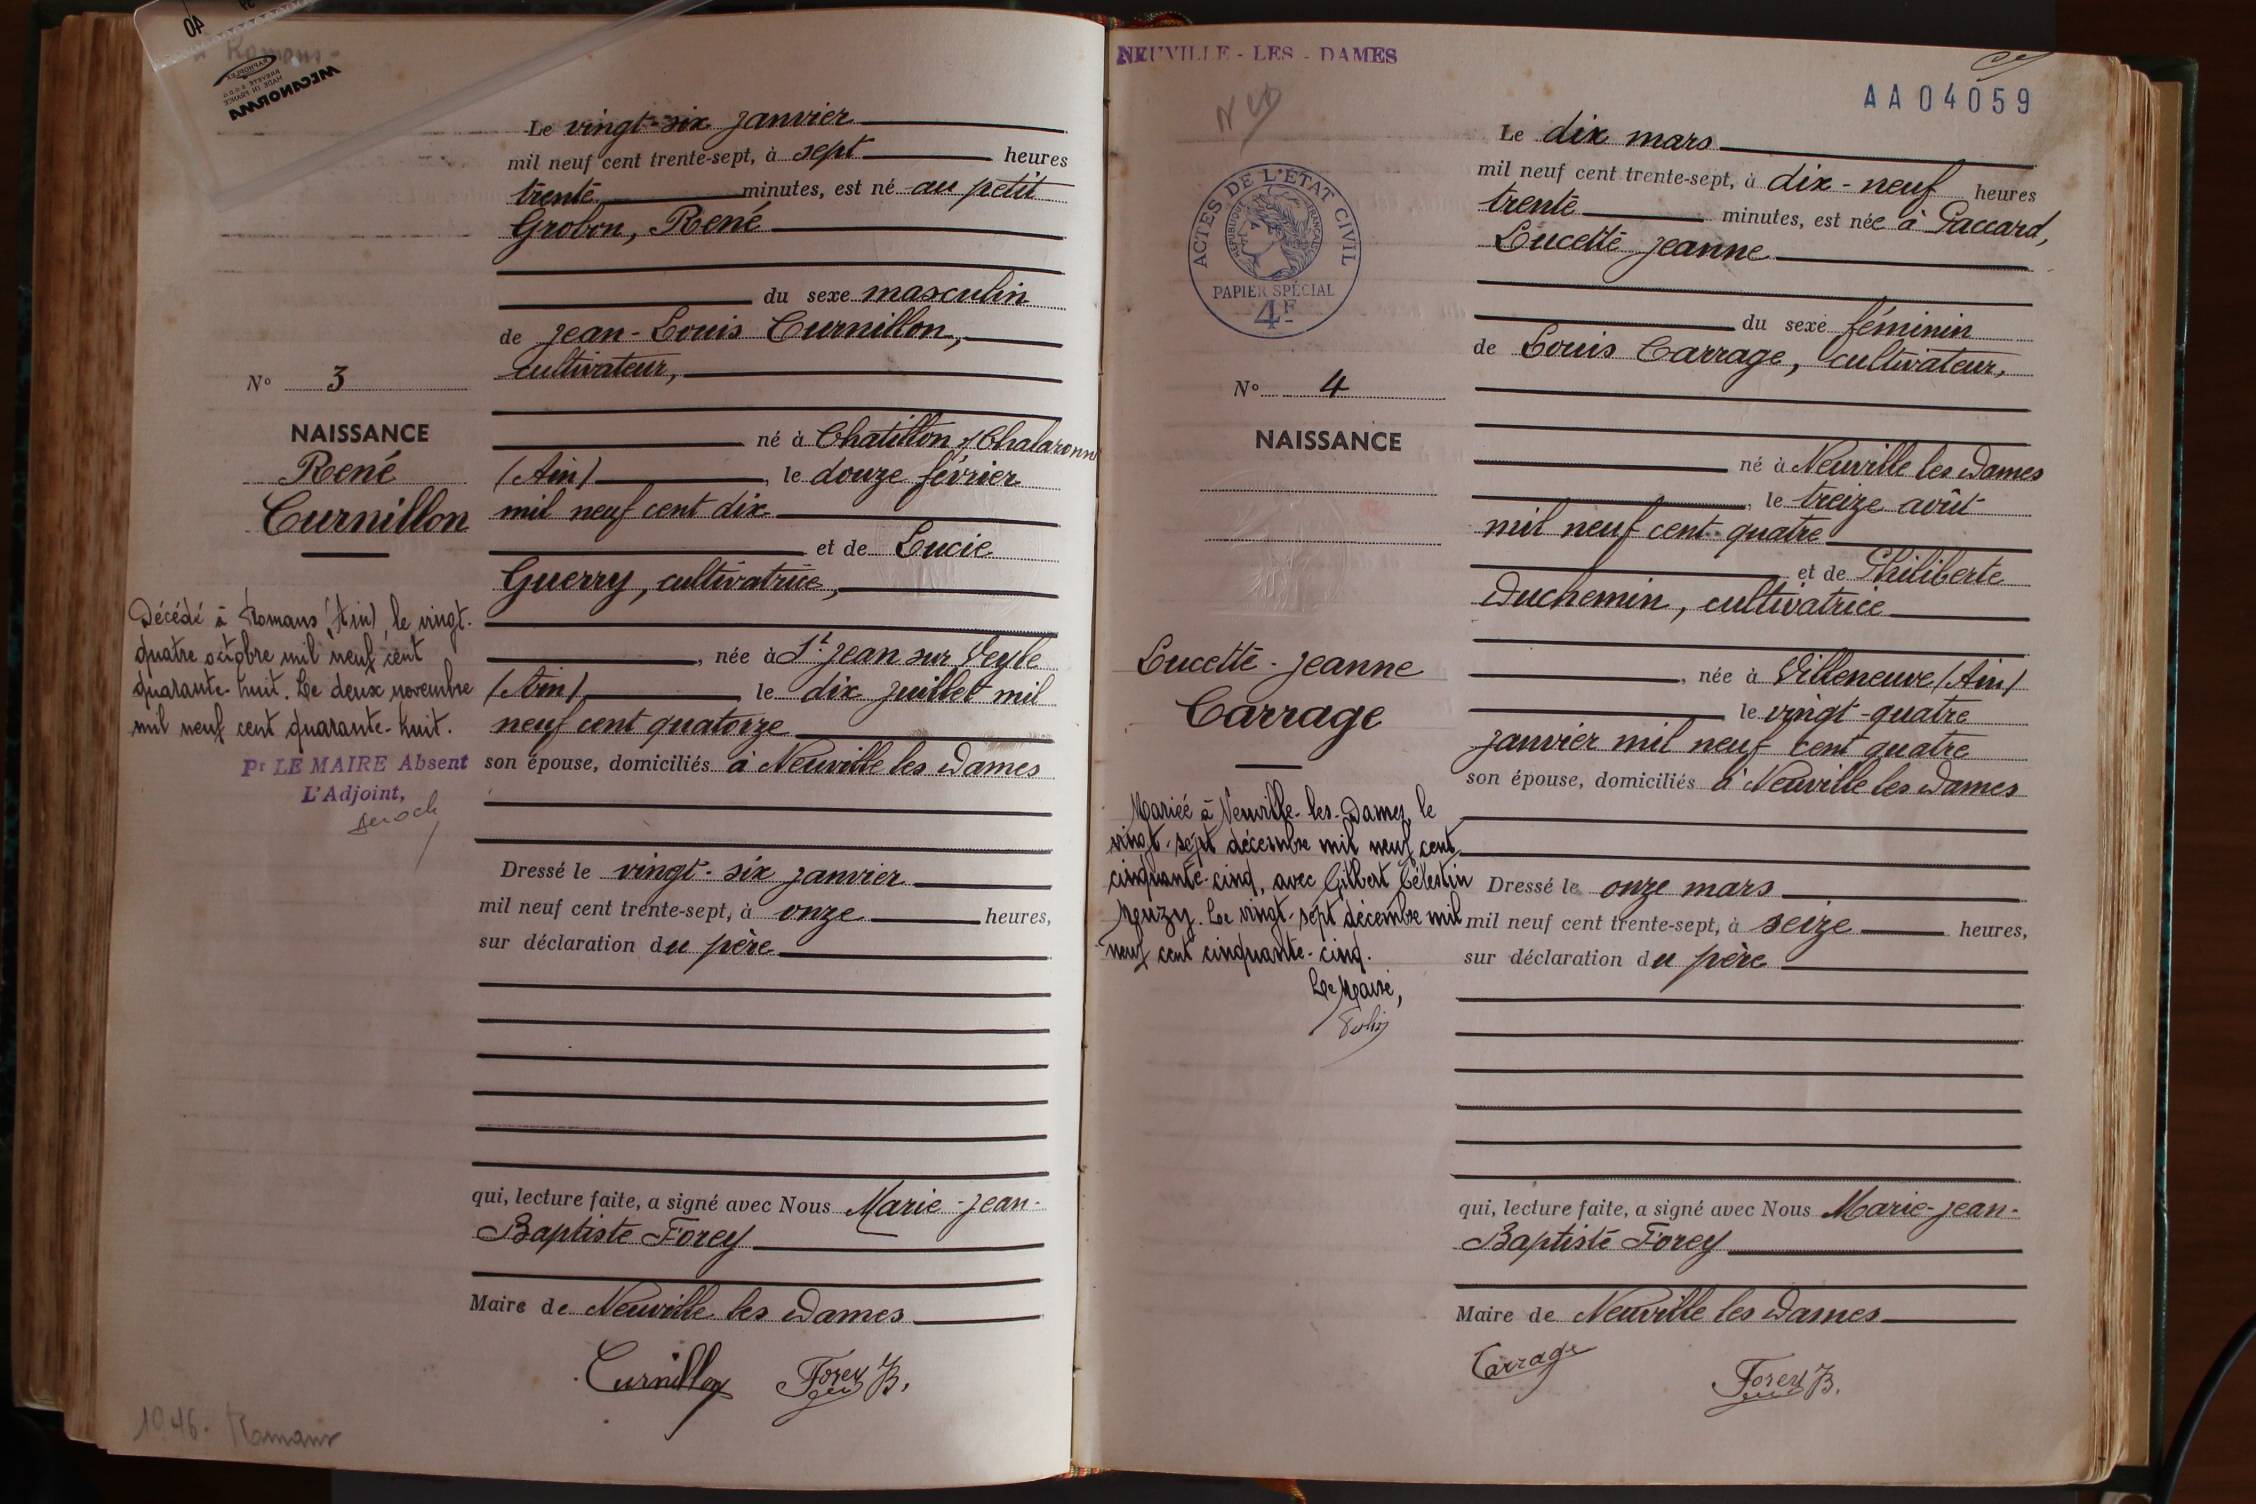 40
à Romans -
MECANORMA
GRAPHOPLEX
BREVETÉ S.G.D.G.
MADE IN FRANCE
Le vingt-six janvier
mil neuf cent trente-sept, à sept heures
trente minutes, est né au petit
Grobon, René
du sexe masculin
de Jean-Louis Curnillon,
cultivateur,
né à Chatillon s/Chalaronne
(Ain), le douze février
mil neuf cent dix
et de Lucie
Guerry, cultivatrice,
, née à St Jean sur Veyle
(Ain) le dix juillet mil
neuf cent quatorze
son épouse, domiciliés à Neuville les Dames
Dressé le vingt-six janvier
mil neuf cent trente-sept, à onze heures,
sur déclaration du père
qui, lecture faite, a signé avec Nous Marie-Jean-
Baptiste Forey
Maire de Neuville les Dames
Curnillon Forey B.
N° 3
NAISSANCE
René
Curnillon
Décédé à Romans (Ain) le vingt-
quatre octobre mil neuf cent
quarante-huit. Le deux novembre
mil neuf cent quarante-huit.
Pr LE MAIRE Absent
L'Adjoint,
1946. Romans
NEUVILLE - LES - DAMES
AA04059
ACTES DE L'ETAT CIVIL
RÉPUBLIQUE FRANÇAISE
PAPIER SPÉCIAL
4F
Le dix mars
mil neuf cent trente-sept, à dix-neuf heures
trente minutes, est née à Paccard,
Lucette Jeanne
du sexe féminin
de Louis Carrage, cultivateur,
né à Neuville les Dames
, le treize août
mil neuf cent quatre
et de Philiberte
Duchemin, cultivatrice
, née à Villeneuve (Ain)
le vingt-quatre
janvier mil neuf cent quatre
son épouse, domiciliés à Neuville les Dames
Dressé le onze mars
mil neuf cent trente-sept, à seize heures,
sur déclaration du père
qui, lecture faite, a signé avec Nous Marie-Jean-
Baptiste Forey
Maire de Neuville les Dames
Carrage Forey B.
N° 4
NAISSANCE
Lucette-Jeanne
Carrage
Mariée à Neuville-les-Dames, le
vingt-sept décembre mil neuf cent
cinquante-cinq, avec Gilbert Célestin
Mouzy. Le vingt-sept décembre mil
neuf cent cinquante-cinq.
Le Maire,